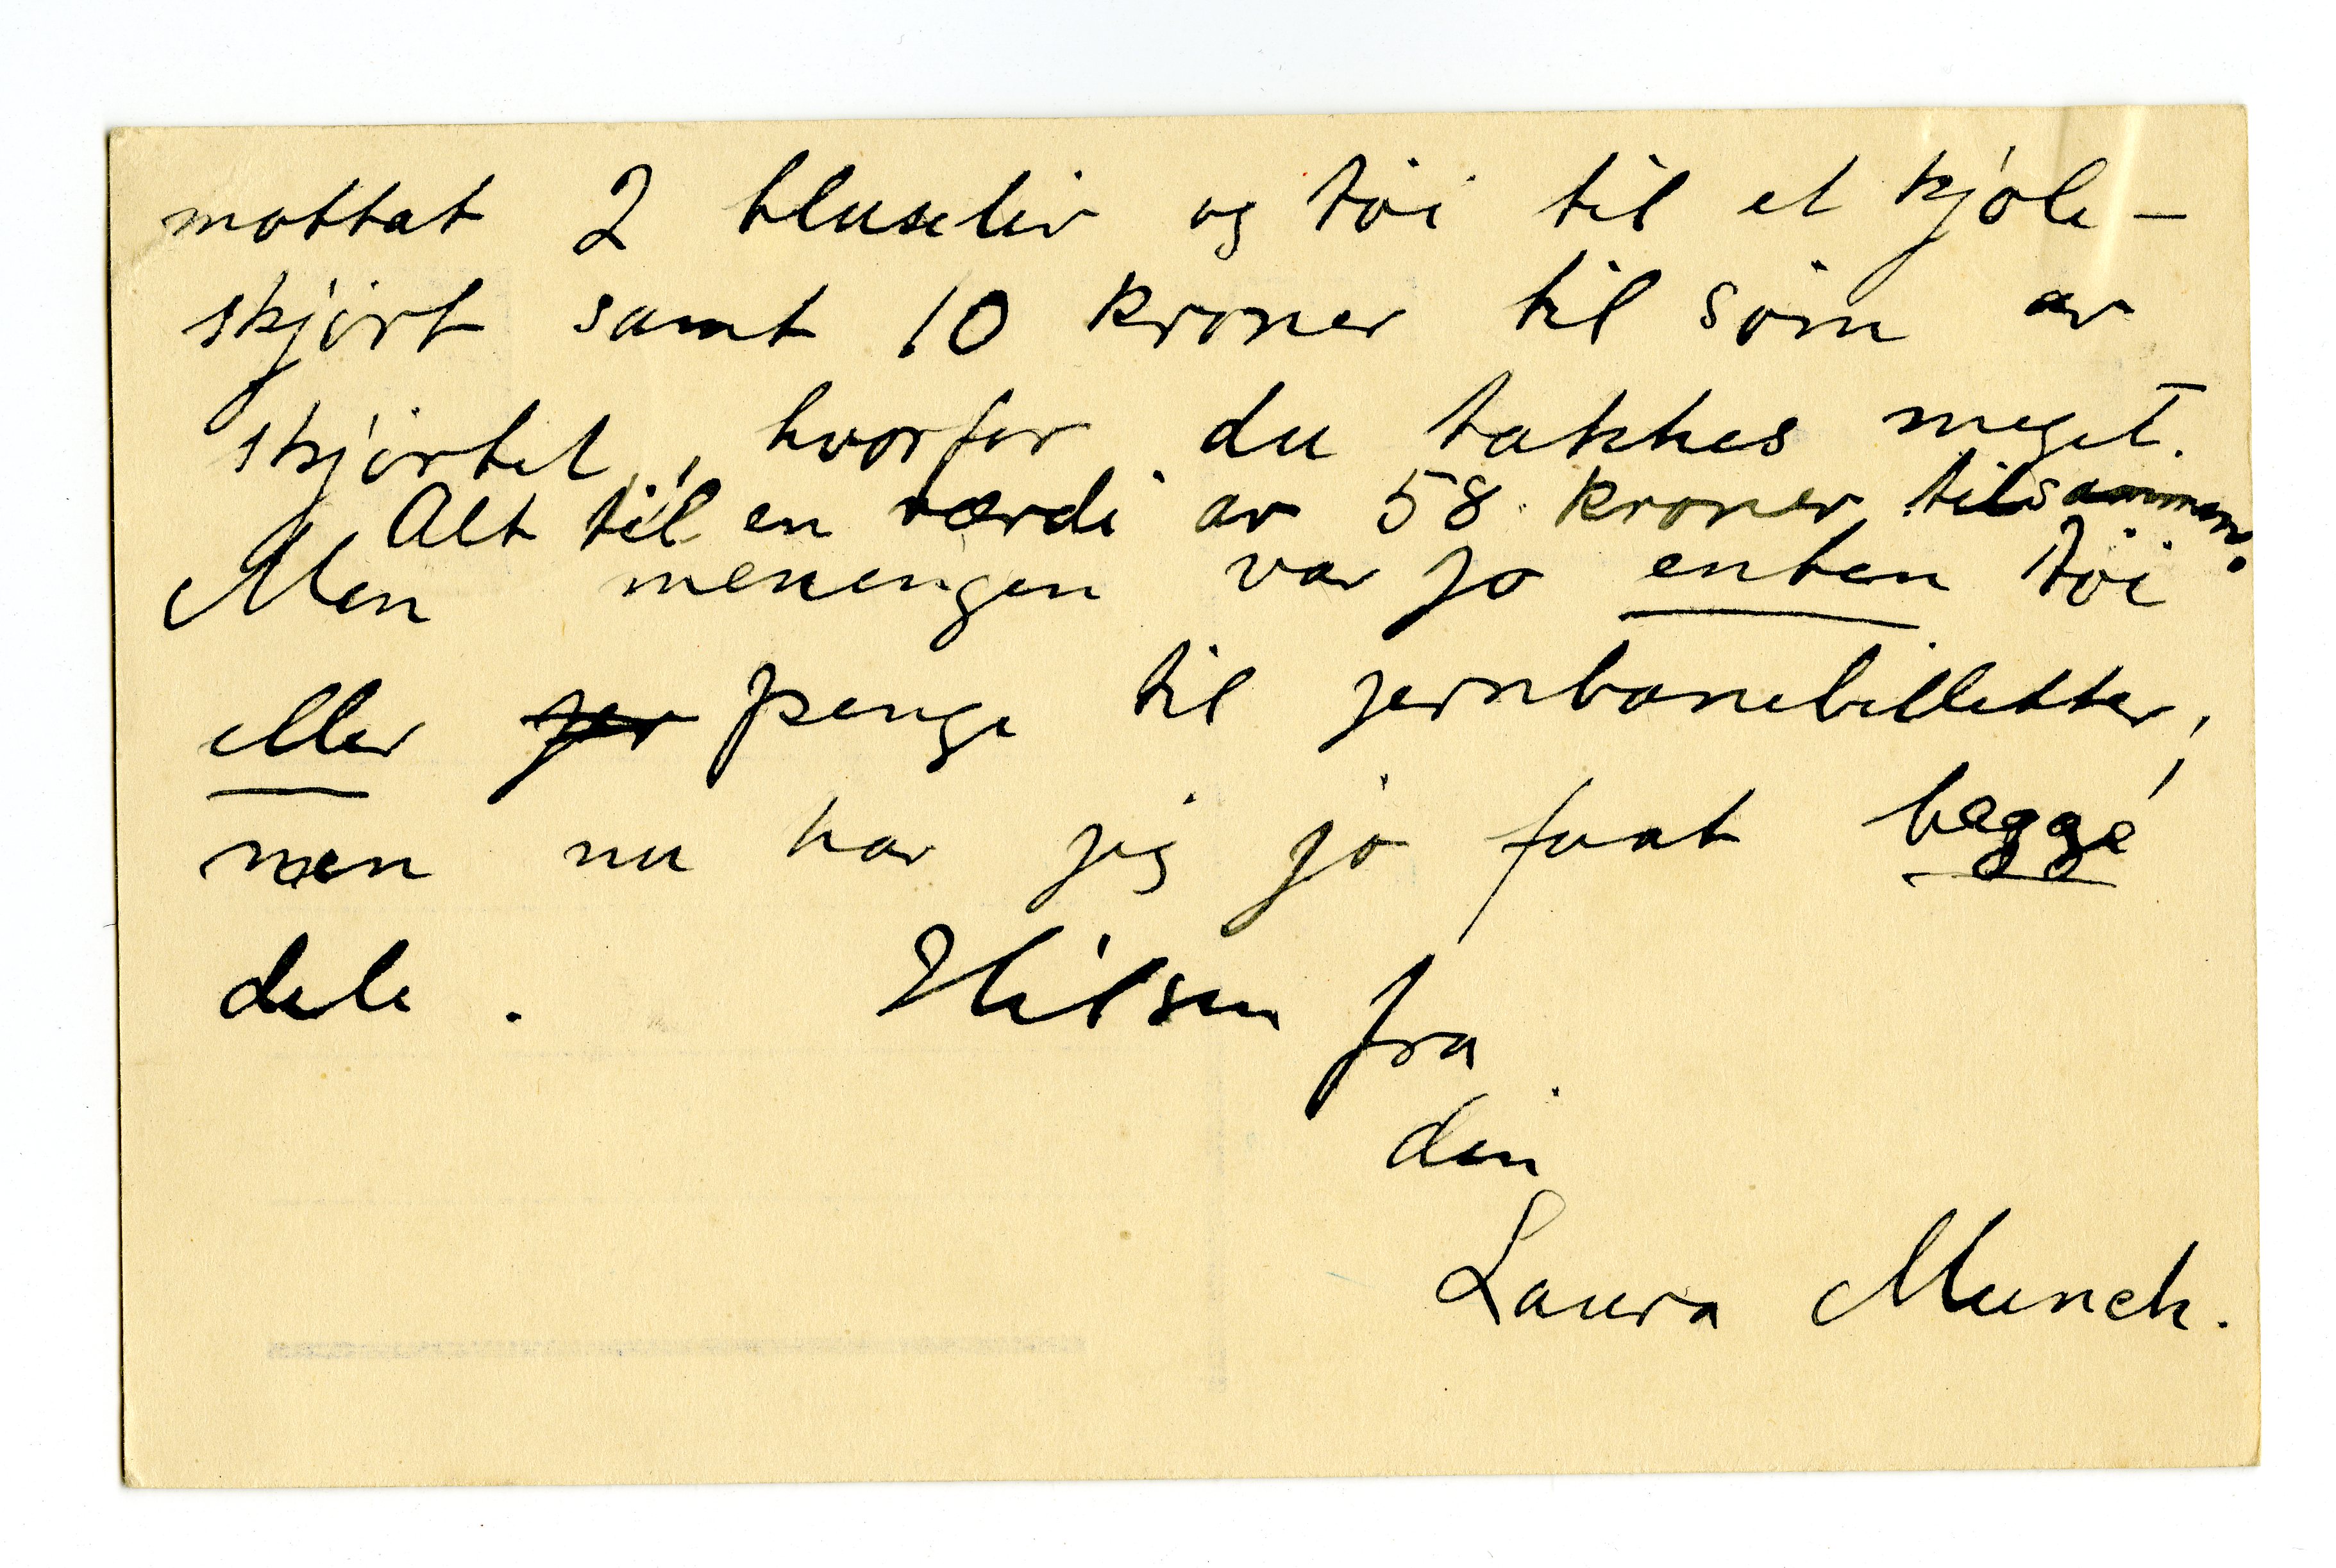 mottat 2 bluseliv og töi til et kjole-
skjört samt 10 kroner til söm av
skjörtet, hvorfor du takkes meget.
Alt til en værdi av 58 kroner tilsammen.
Men meningen var jo enten töi
eller jer penge til jernbanebilletter,
men nu har jeg jo faat begge
dele. Hilsen fra
din
Laura Munch.